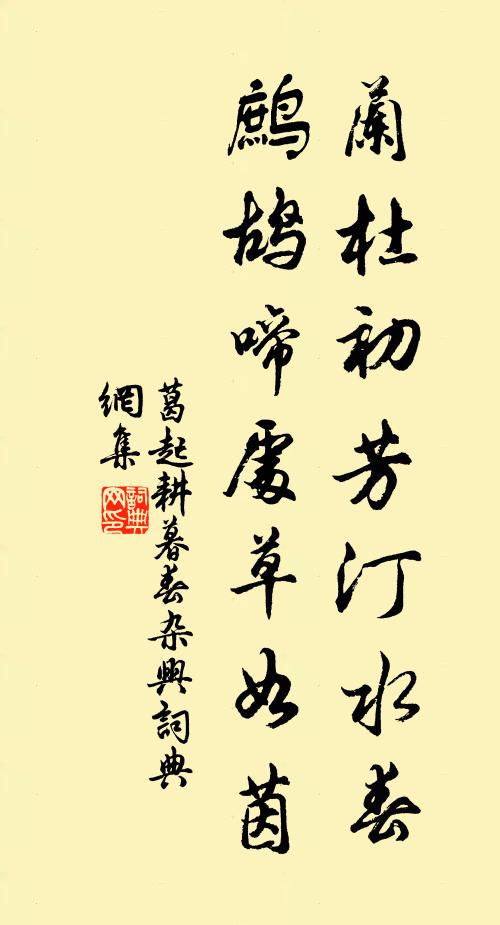 蘭杜初芳汀水春
鷓鴣啼處草如茵
葛起耕暮春杂興詞典
網集
詞典網印